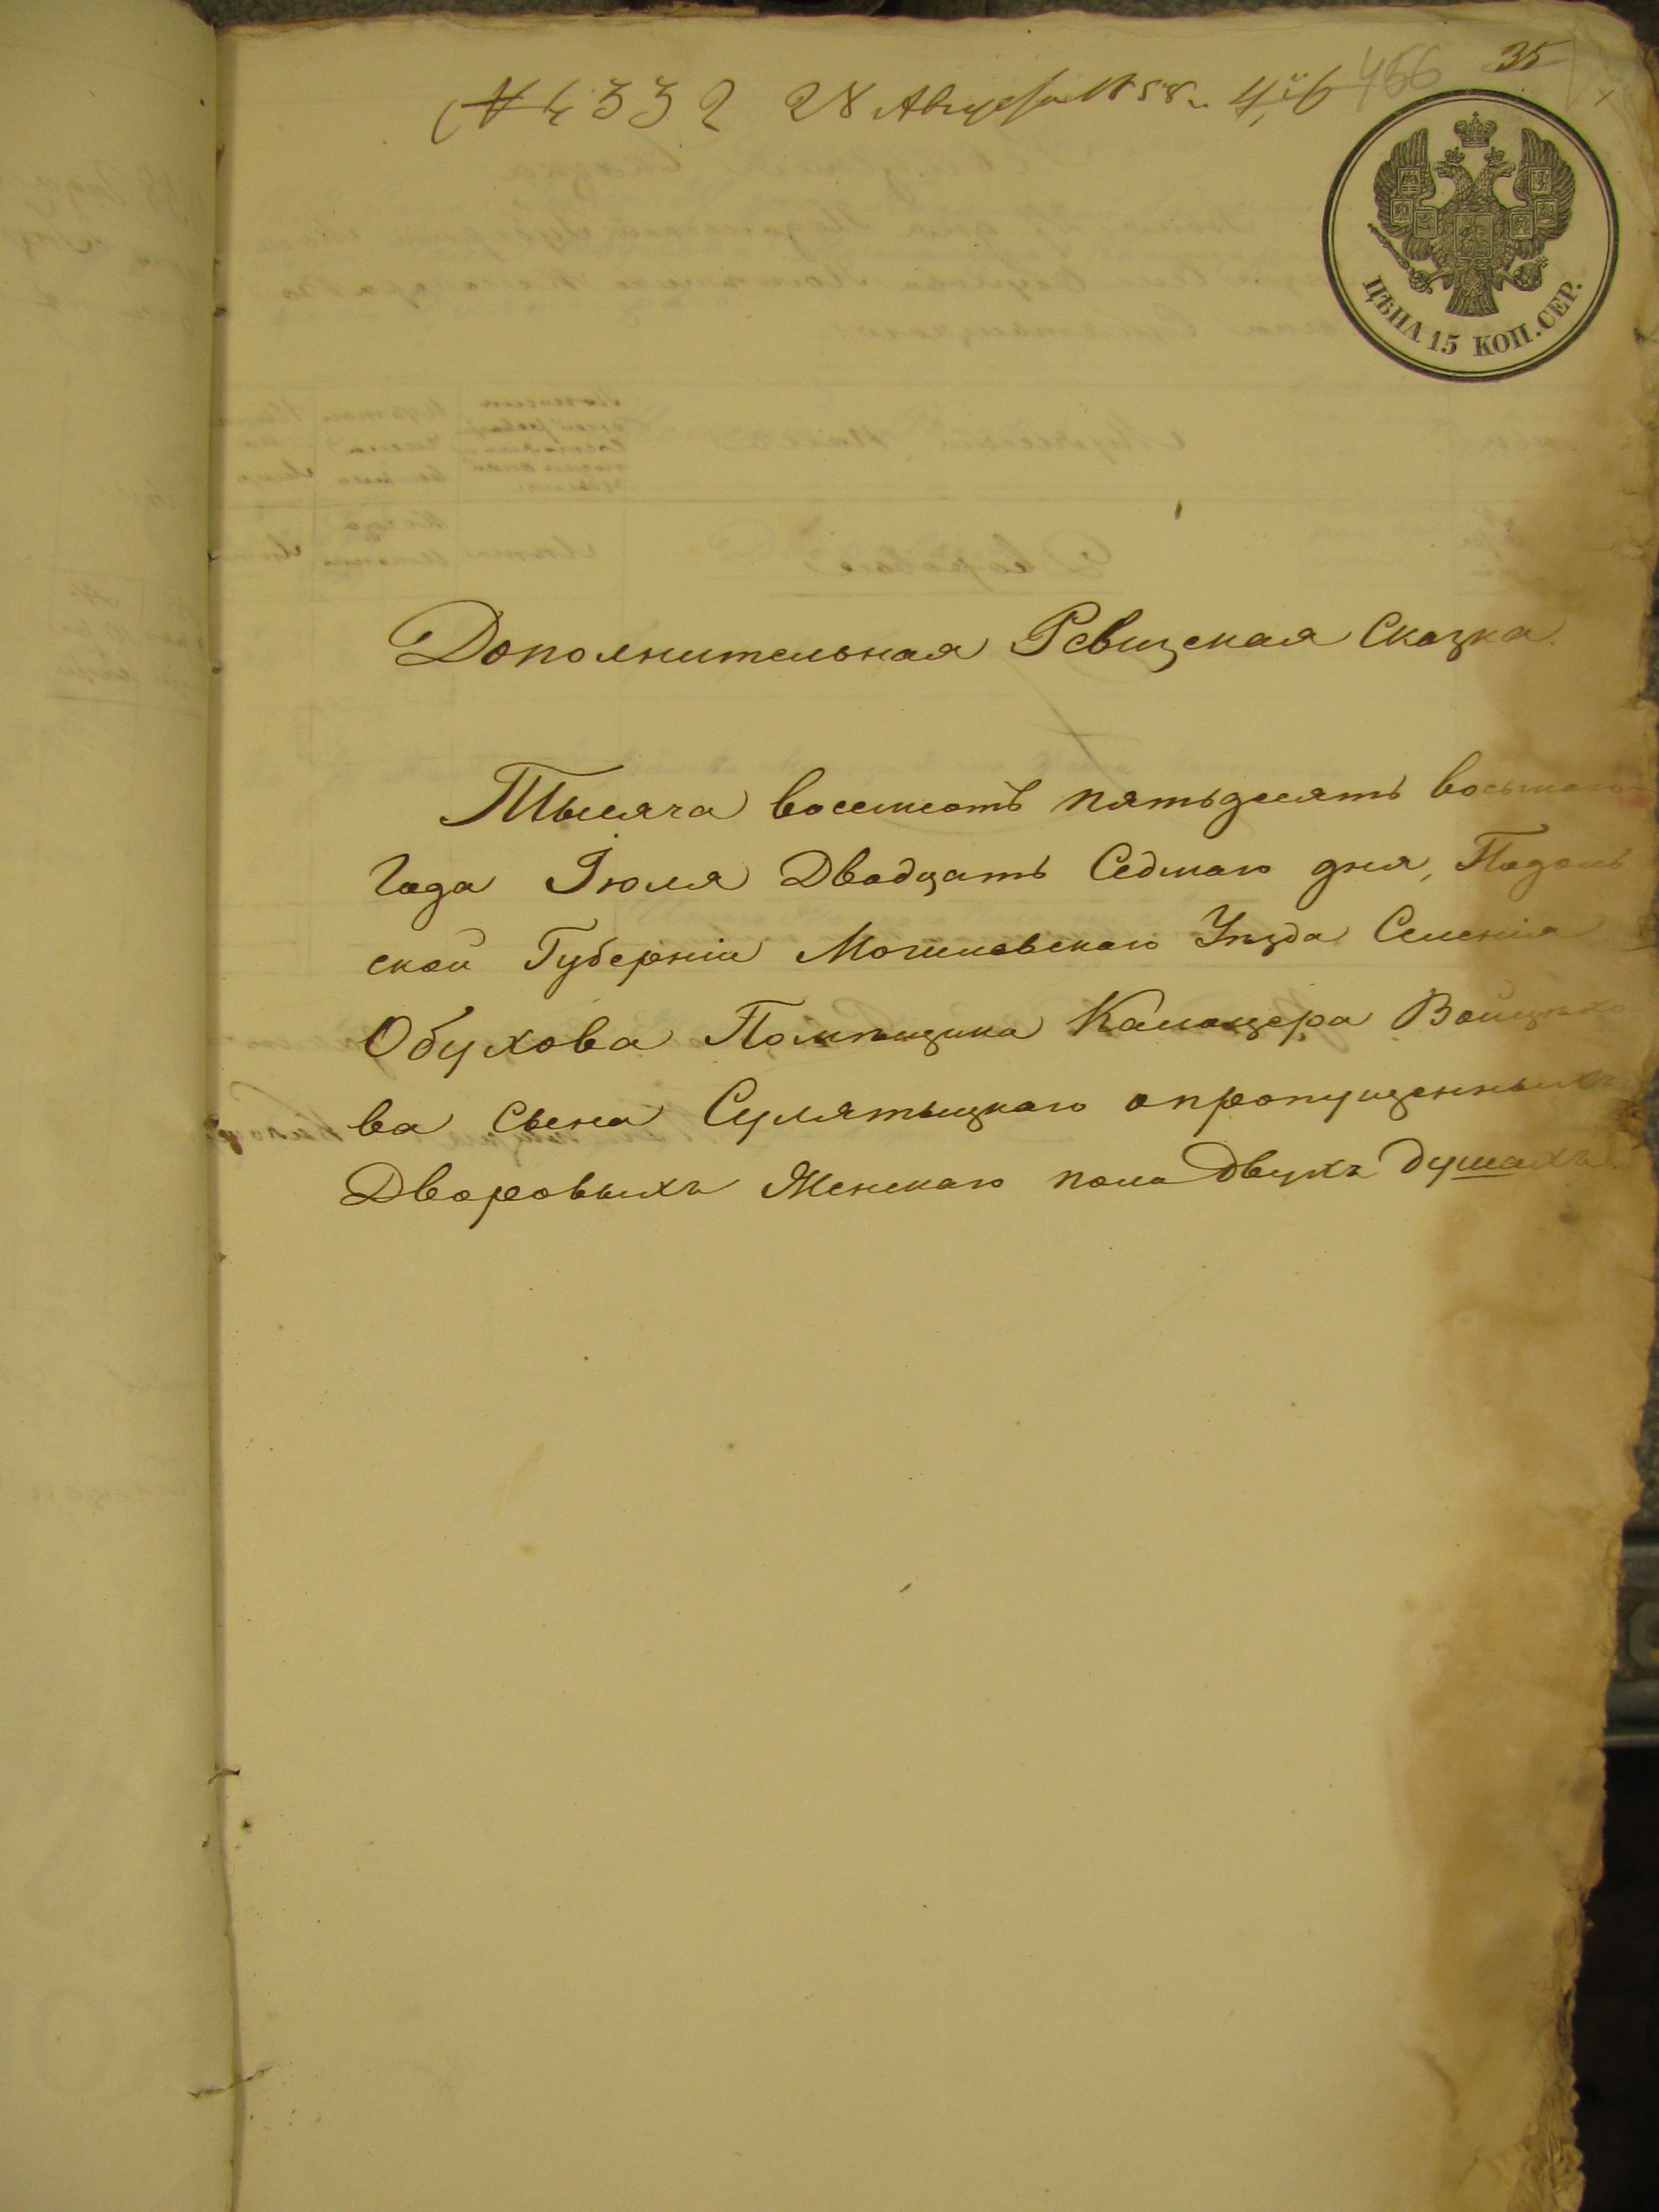 № 4332 28 Августа 1858 г.
466
35
ЦѢНА 15 КОП. СЕР.
Дополнительная Ревизская Сказка.
Тысяча восемсотъ пятьдесятъ восьмаго
Года Іюля Двадцать Седмаго дня, Подоль
ской Губерніи Могилевскаго Уѣзда Селенія
Обухова Помѣщика Каликсера Войцехо
ва Сына Сулятыцкаго опропущенныхъ
Дворовыхъ Женскаго пола двухъ душахъ